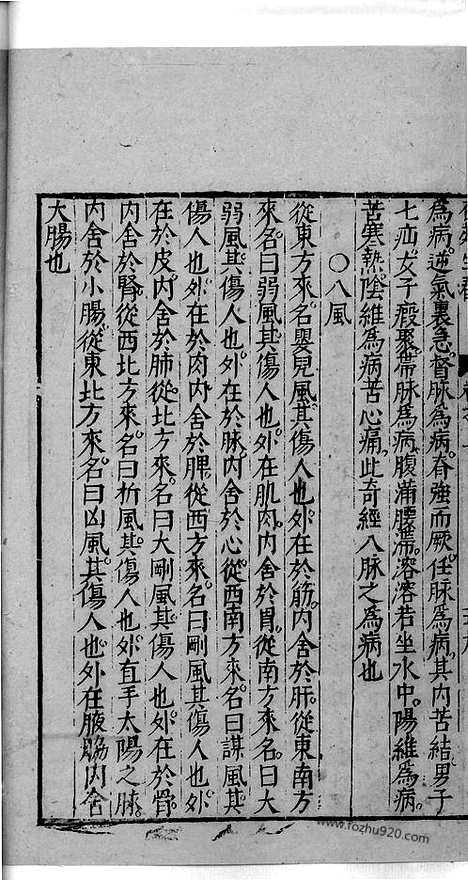 為病。逆氣裏急。督脉為病。脊強而厥。任脉為病。其内苦結。男子
七疝。女子瘕聚。帶脉為病。腹滿腰溶溶若坐水中。陽維為病。
苦寒熱。陰維為病。苦心痛。此奇經八脉之為病也
○八風
從東方來。名嬰兒風。其傷人也。外在於筋。内舍於肝。從東南方
來。名曰弱風。其傷人也。外在肌肉。内舍於胃。從南方來。名曰大
弱風。其傷人也。外在於脉。内舍於心。從西南方來。名曰謀風。其
傷人也。外在於肉。内舍於脾。從西方來。名曰剛風。其傷人也。外
在於皮。内舍於肺。從北方來。名曰大剛風。其傷人也。外在於骨。
内舍於腎。從西北方來。名曰析風。其傷人也。外直手太陽之脉。
内舍於小腸。從東北方來。名曰凶風。其傷人也。外在腋脇。内舍
大腸也
www.fozhu920.com